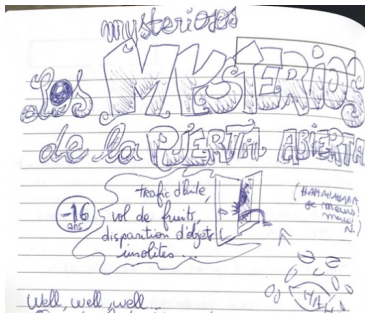 mysterioses
Los MYSTERIOS
de la PUERTA ABIERTA
-16
ans
trafic d'huile,
vol de fruits,
disparition d'objets
insolites...
je meurs
HA
Well, well, well...